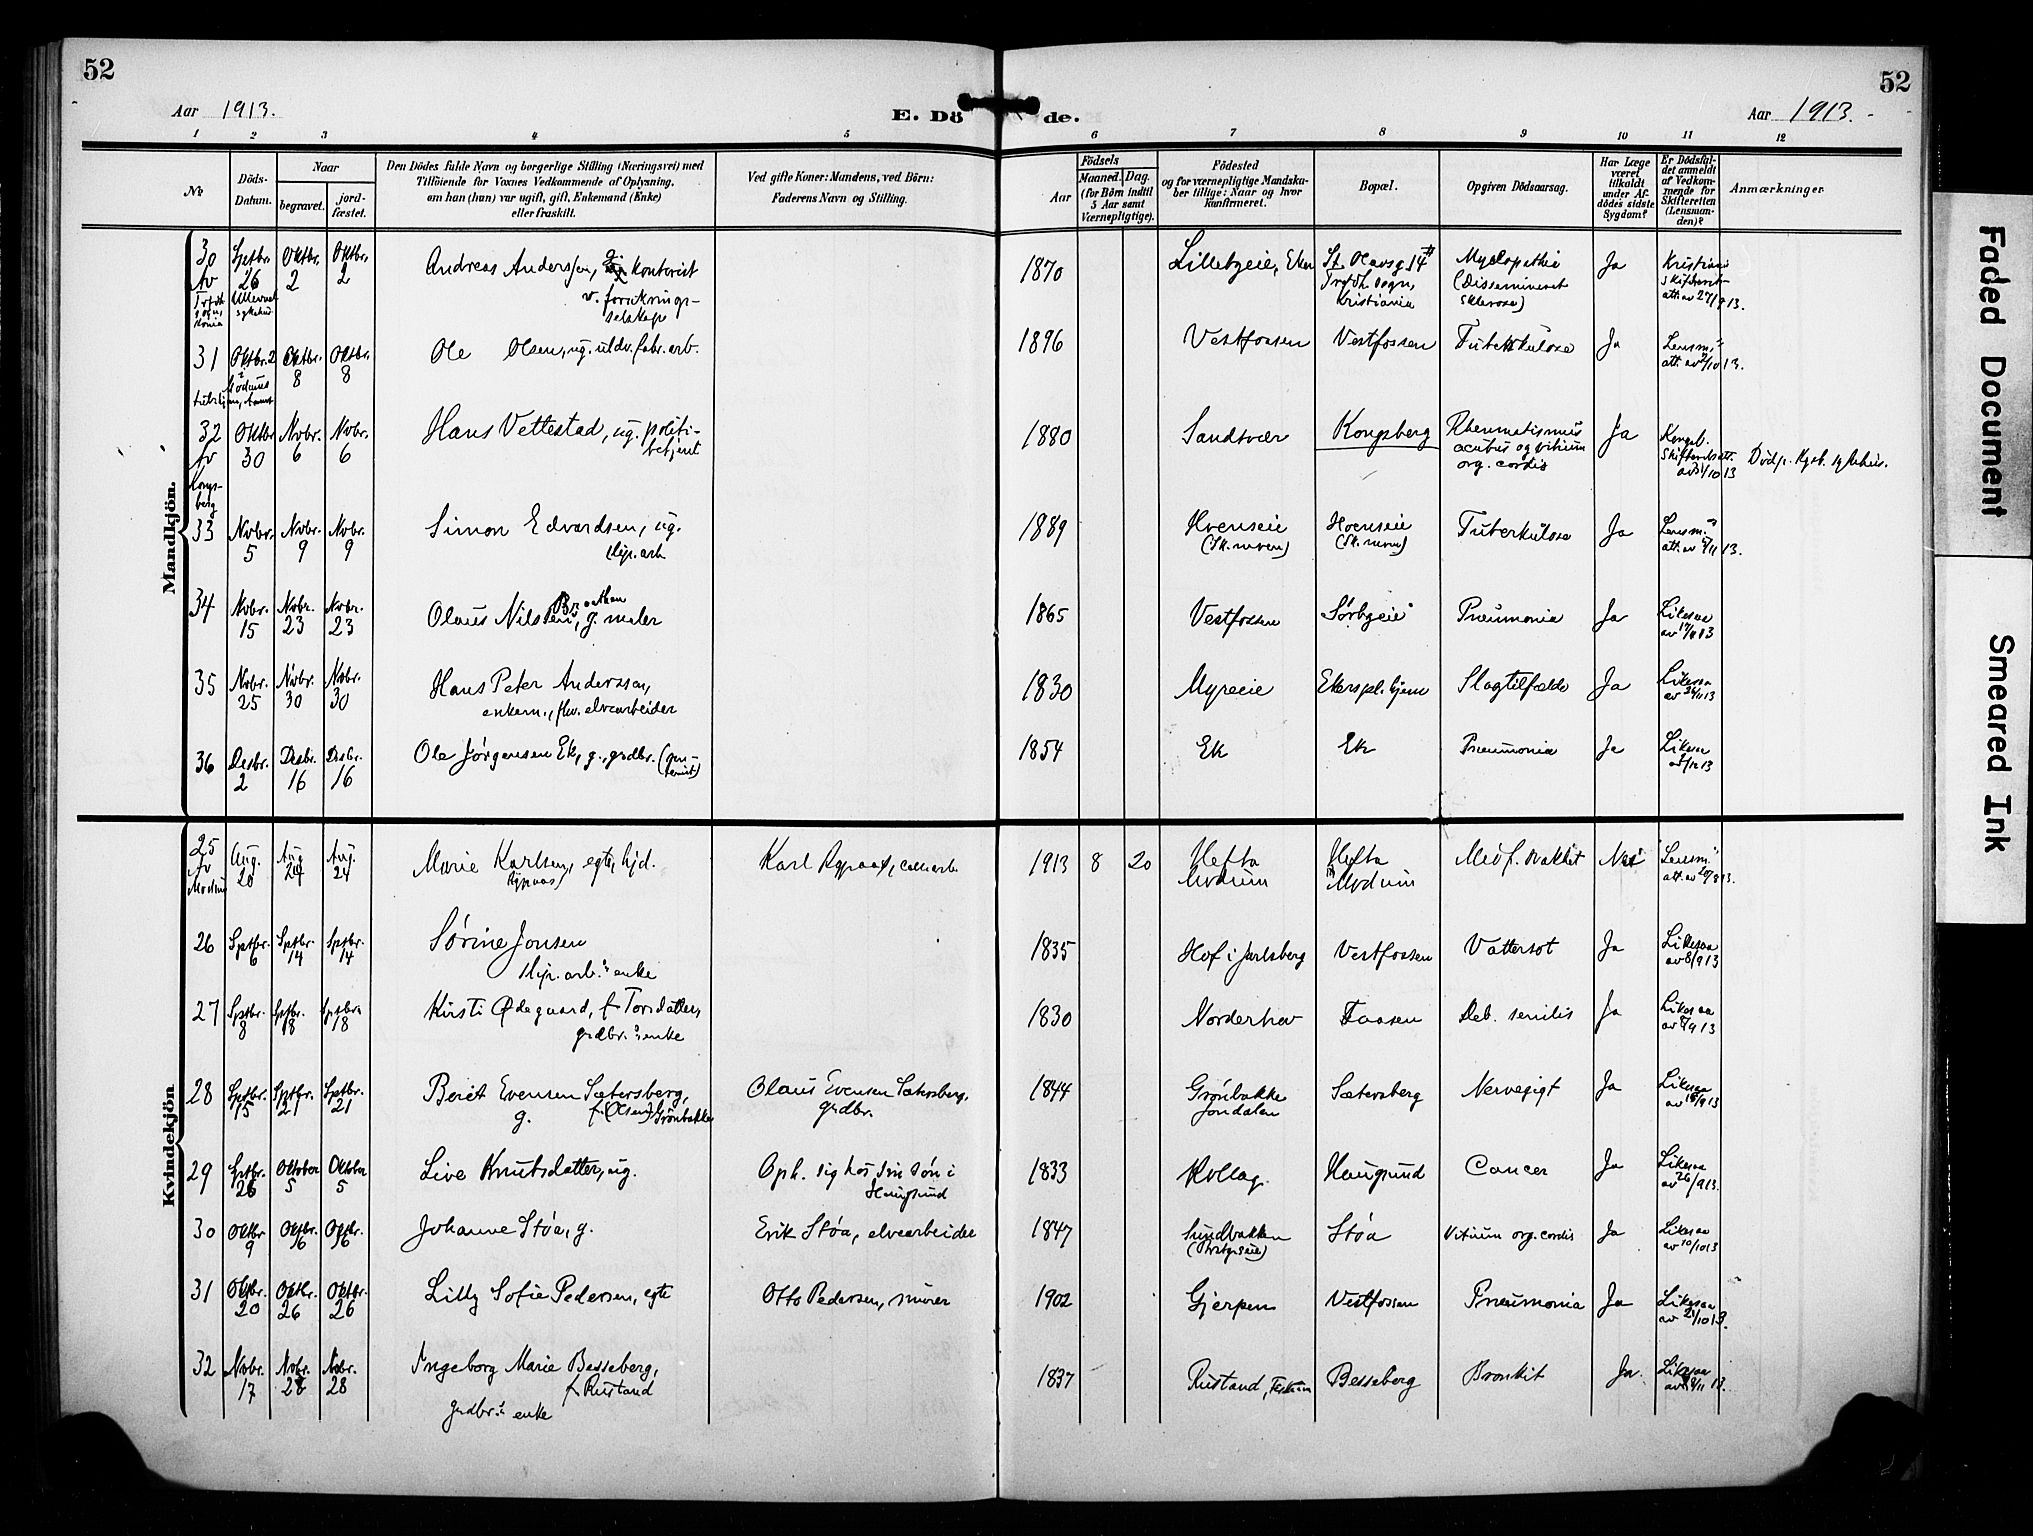 52
52
Aar 1913.
E. Dö de.
Aar 1913.
1 2 3 4 5 6 7 8 9 10 11 12
No
Döds-Datum.
Naar
begravet.
jord-fæstet.
Den Dödes fulde Navn og borgerlige Stilling (Næringsvei) med
Tilföiende for Voxnes Vedkommende af Oplysning,
om han (hun) var ugift, gift, Enkemand (Enke)
eller fraskilt.
Ved gifte Koner: Mandens, ved Börn:
Faderens Navn og Stilling.
Födsels
Aar
Maaned. Dag.
(for Börn indtil
5 Aar samt
Værnepligtige).
Födested
og for værnepligtige Mandska-
ber tillige: Naar og hvor
Konfirmeret.
Bopæl.
Opgiven Dödsaarsag.
Har Læge
været
tilkaldt
under Af-
dödes sidste
Sygdom?
Er Dödsfal-
det anmeldt
af Vedkom-
mende for
Skifteretten
(Lensman-
den)?
Anmærkninger
Mandkjön.
30 Sptbr. 26 Oktbr. 2 Oktbr. 2 Andreas Anderssen, kontorist 1870 Lillebyeie, Eker St. Olavsg 14 Myelopathia Ja
v. forsikrings-
selskap
Kristiania
(Dissemineret
sklerose)
31 Oktbr. 2 Oktbr. 8 Oktbr. 8 Ole Olsen, ug. uldv. fabr. arb. 1896 Vestfossen Vestfossen Tuberkulose Ja Lensm.
32 Oktbr 30 Nvbr. 6 Nvbr. 6 Hans Vettestad, ug. politi-
betjent 1880 Sandsvær Kongsberg Rheumatismus
acutus og vitium
org. cordis Ja Kongsb.
av Kongs-
berg
33 Nvbr. 5 Nvbr. 9 Nvbr. 9 Simon Edvardsen, ug. 1889 Hvenseie Hvenseie Tuberkulose Ja Lensm.
34 Nvbr. 15 Nvbr. 23 Nvbr. 23 Olaus Nilsen Braathen, g. maler 1865 Vestfossen Sørbyeie Pneumonia Ja Likesaa
35 Nvbr. 25 Nvbr. 30 Nvbr. 30 Hans Peter Anderssen,
enkem., fhv. elvearbeider 1830 Myreeie Ekers pl. hjem Slagtilfælde Ja Likesaa
36 Desbr. 2 Desbr. 16 Desbr. 16 Ole Jørgensen Ek, g., grdbr. 1854 Ek Ek Pneumonia Ja Likesaa
Kvindekjön
25 av Modum Aug. 20 Aug 24 Aug. 24 Marie Karlsen, egte, hjd. Karl 1913 8 20 Hefta
Modum Hefta
Modum Medf. svakhet Nei Lensm.
26 Sptbr. 6 Sptbr. 14 Sptbr. 14 Sørine Jonsen
enke 1835 Hof i Jarlsberg Vestfossen Vattersot Ja Likesaa
av 8/9 13
27 Sptbr. 8 Sptbr. 18 Sptbr. 18 Kirsti Ødegaard, f. Torsdatter,
grdbr.s enke 1830 Norderhov Faasen Deb. senilis Ja Likesaa
28 Sptbr. 15 Sptbr. 21 Sptbr. 21 Berit Evensen Sætersberg,
g. f. (Olsen) Grönbakke Olaus Evensen Sætersberg,
grdbr. 1844 Grönbakke
Jondalen Sætersberg Nervegigt Ja Likesaa
29 Sptbr. 26 Oktober 5 Oktober 5 Live Knutsdatter, ug. Oph. sig hos sin søn i
Haugsund 1833 Rollag Haugsund Cancer Ja Likesaa
av 26/9 13.
30 Oktbr 9 Oktbr. 16 Oktbr. 16 Johanne Støa, g. Erik Støa, elvearbeider 1847 Sundbakken Støa Vitium org. cordis Ja Likesaa
av 10/10 13
31 Oktbr. 20 Oktbr. 26 Oktbr. 26 Lilly Sofie Pedersen, egte Otto Pedersen, murer 1902 Gjerpen Vestfossen Pneumonia Ja Likesaa
av 21/10 13.
32 Nvbr. 17 Nvbr. 28 Nvbr. 28 Ingeborg Marie Besseberg,
f. Rustand
grdbr.s enke 1837 Rustand Besseberg Bronkit Ja. Likesaa
Faded Document
Smeared Ink